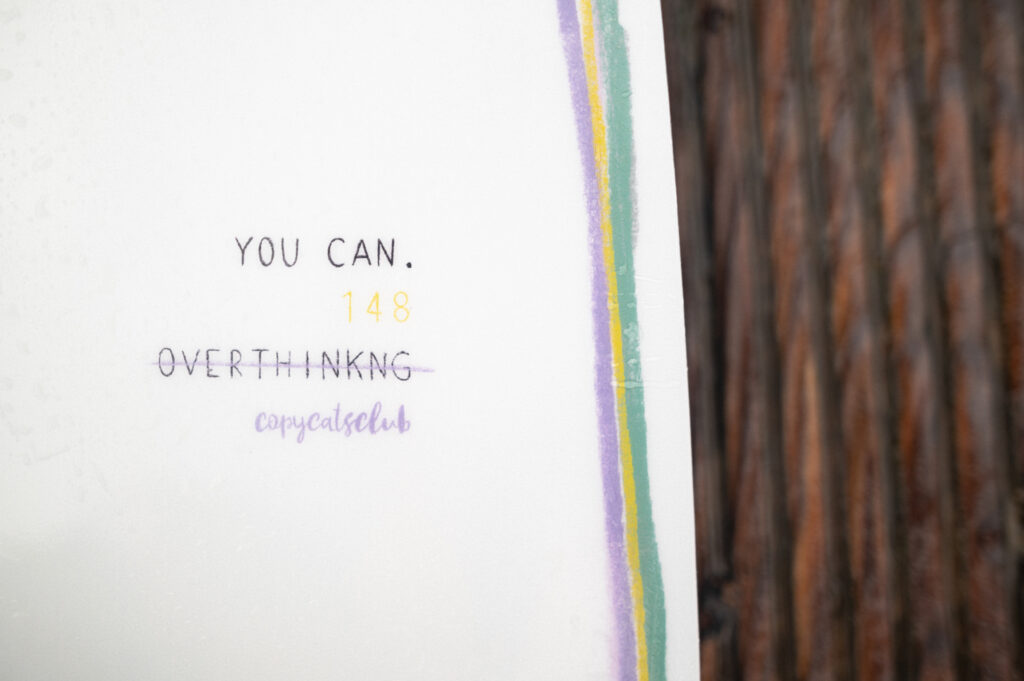 YOU CAN.
148
OVERTHINKNG
copycatsclub